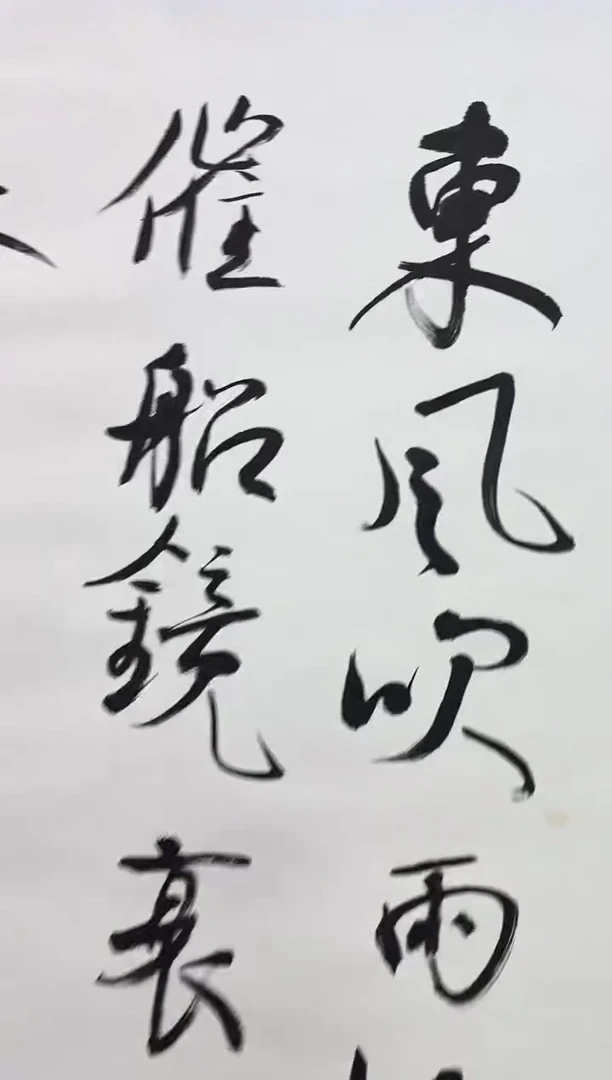 東風吹雨
催船鏡裏